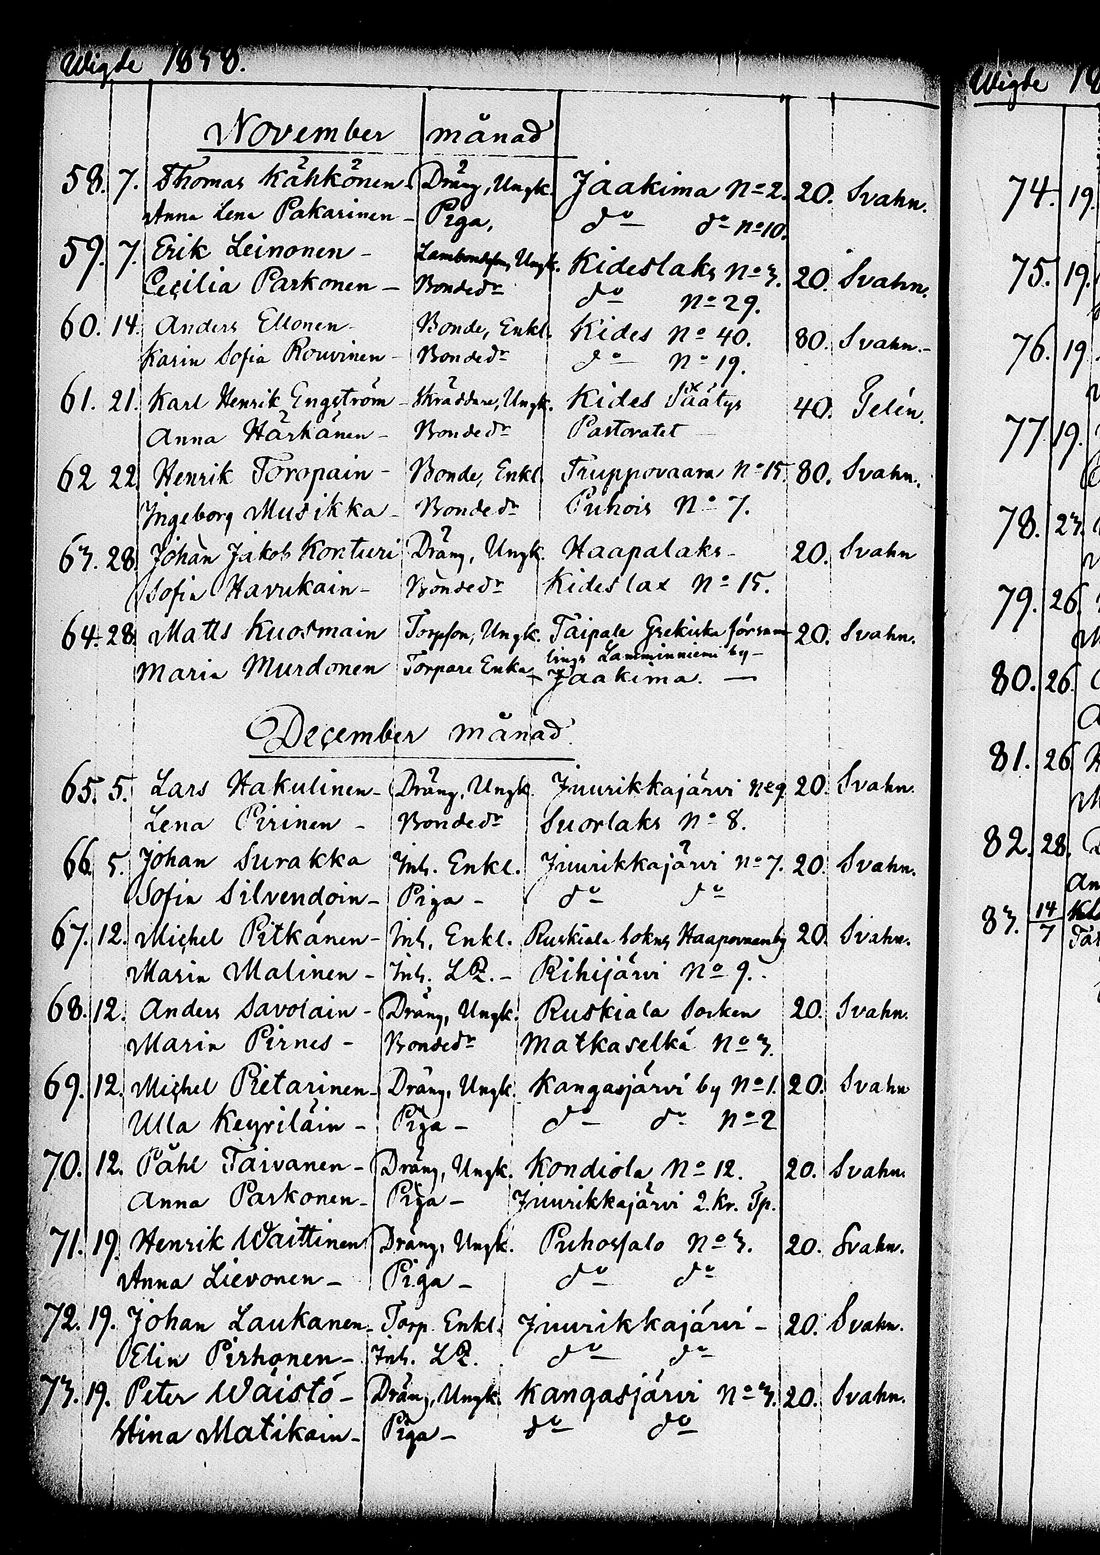 Wigde 1858.
November månad
58. 7. Thomas Kähkönen - Dräng, Ungk. Jaakima No 2. 20. Svahn.
Anna Lena Pakarinen - Piga, do do No 10.
59. 7. Erik Leinonen - Ungk. Kideslaks No 3. 20. Svahn.
Cecilia Parkonen - Bondedr do No 29.
60. 14. Anders Ellonen - Bonde, Enkl. Kides No 40. 80. Svahn.
Karin Sofia Rouvinen - Bondedr do No 19.
61. 21. Karl Henrik Engström - Skräddare, Ungk. Kides Säätys 40. Telén.
Anna Härkänen - Bondedr Pastoratet
62 22 Henrik Toropain - Bonde, Enkl. Truppovaara No 15. 80. Svahn.
Ingeborg Musikka - Bondedr Puhois No 7.
63. 28. Johan Jakob Konturi Dräng, Ungk. Haapalaks - 20. Svahn
Sofia Havukain - Bondedr Kideslax No 15.
64. 28. Matts Kuosmain Torpson, Ungk. Taipale Grekiska försam- 20. Svahn.
lings Lamminniemi by -
Maria Murdonen Torpare Enka - Jaakima. -
December månad.
65. 5. Lars Hakulinen - Dräng, Ungk. Juurikkajärvi No 9 20. Svahn.
Lena Pirinen - Bondedr Suorlaks No 8.
66. 5. Johan Surakka Inh. Enkl. Juurikkajärvi No 7. 20. Svahn.
Sofia Silvendoin - Piga - do do
67. 12. Michel Pitkänen - Inh. Enkl. Ruskiala sokns Haapovaara by 20. Svahn.
Maria Malinen - Inh. LQ. - Rihijärvi No 9.
68. 12. Anders Savolain - Dräng, Ungk. Ruskiala Socken 20. Svahn.
Maria Pirnes - Bondedr Matkaselkä No 3.
69. 12. Michel Pietarinen - Dräng, Ungk. Kangasjärvi by No 1. 20. Svahn
Ulla Keyriläin - Piga - do do No 2
70. 12. Påhl Taivanen - Dräng, Ungk. Kondiola No 12. 20. Svahn.
Anna Parkonen - Piga - Juurikkajärvi 2. Kr. Tp.
71. 19. Henrik Waittinen Dräng, Ungk. Puhossalo No 3. 20. Svahn.
Anna Lievonen - Piga - do do
72. 19. Johan Laukanen - Torp. Enkl. Juurikkajärvi - 20. Svahn.
Elin Pirhonen - Inh. LQ. do do
73. 19. Peter Wäistö - Dräng, Ungk. Kangasjärvi No 3. 20. Svahn.
Stina Matikain - Piga - do do
Wigde 18
74. 19.
75. 19.
76. 19.
77. 19.
78. 23.
79. 26.
80. 26.
81. 26.
82. 28.
An
83. 14/7